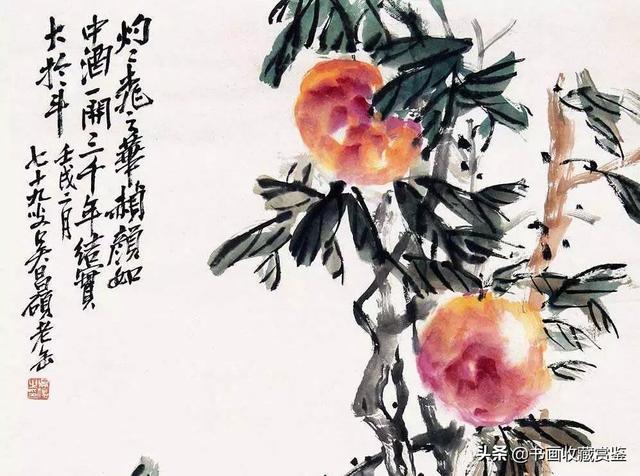 灼〻桃之華赬顏如
中酒一開三千年結實
大於斗
壬戌二月
七十九叟吳昌碩老缶
头条 @书画收藏赏鉴